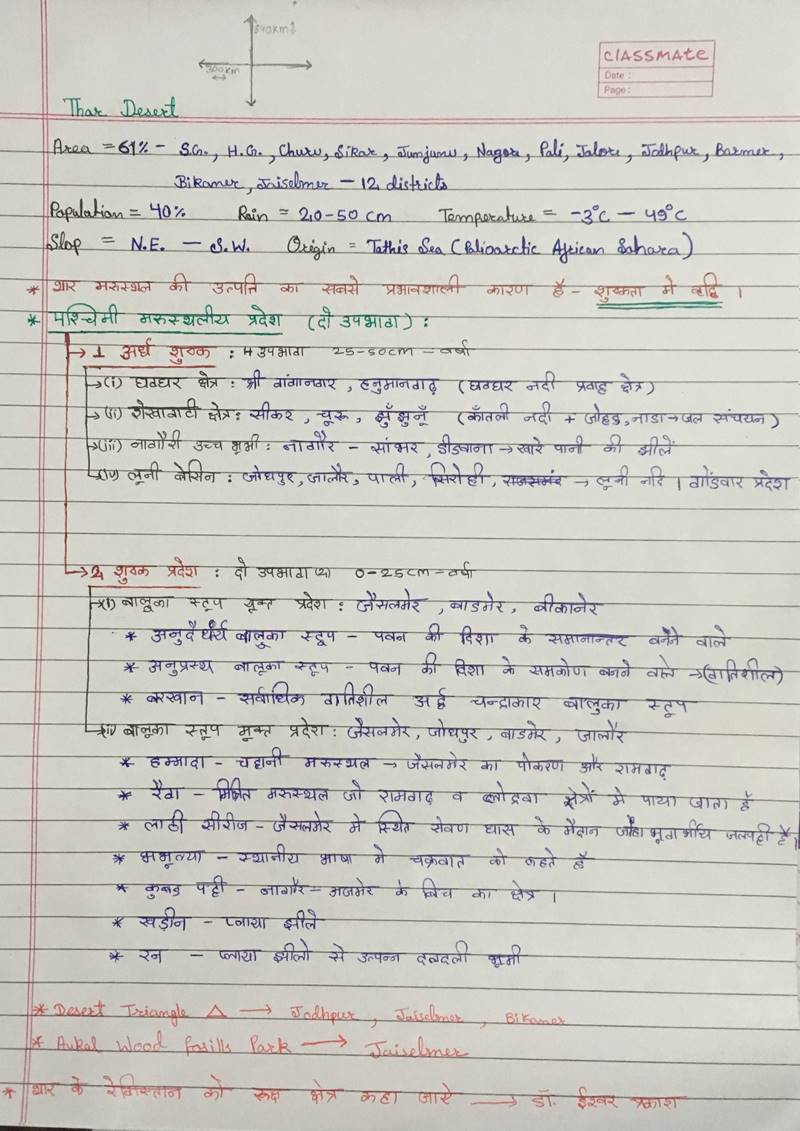 640km
300km
CLASSMATE
Date :
Page :
Thar Desert
Area = 61% - S.G., H.G., Churu, Sikar, Junjunu, Nagore, Pali, Jalore, Jodhpur, Barmer,
Bikaner, Jaiselmer - 12 districts
Population = 40% Rain = 20-50 cm Temperature = -3°C - 49°C
Slop = N.E. - S.W. Origin = Tathis Sea (Palioarctic African Sahara)
* थार मरुस्थल की उत्पति का सबसे प्रभावशाली कारण है - शुष्कता मे वृद्धि ।
* पश्चिमी मरुस्थलीय प्रदेश (दो उपभाग) :
→ 1 अर्ध शुष्क : 4 उपभाग 25-50cm - वर्षा
→ (i) घग्घर क्षेत्र : श्री गंगानगर, हनुमानगढ़ (घग्घर नदी प्रवाह क्षेत्र)
→ (ii) शेखावाटी क्षेत्र : सीकर, चूरू, झुँझुनूँ (काँतली नदी + जोहड़, नाडा → जल संचयन)
→ (iii) नागौरी उच्च भूमी : नागौर - सांभर, डीडवाना → खारे पानी की झीलें
(iv) लूनी बेसिन : जोधपुर, जालौर, पाली, सिरोही, राजसमंद → लूनी नदि । गोंडवार प्रदेश
→ 2 शुष्क प्रदेश : दो उपभाग (2) 0-25cm - वर्षा
→ (i) बालूका स्टूप युक्त प्रदेश : जैसलमेर, बाडमेर, बीकानेर
* अनुदैर्धर्य बालुका स्टूप - पवन की दिशा के समानान्तर बनने वाले
* अनुप्रस्थ बालूका स्टूप - पवन की दिशा के समकोण बनने वाले → (गतिशील)
* बरखान - सर्वाधिक गतिशील अर्द्ध चन्द्राकार बालुका स्तूप
(ii) बालूका स्तूप मूक्त प्रदेश : जैसलमेर, जोधपुर, बाडमेर, जालौर
* हम्मादा - चट्टानी मरूस्थल → जैसलमेर का पोकरण और रामगढ़
* रैग - मिश्रित मरूस्थल जो रामगढ़ व लोद्रवा क्षेत्रों मे पाया जाता है
* लाठी सीरीज - जैसलमेर मे स्थित सेवण घास के मैदान जहाँ भूगर्भीय जलपट्टी है।
* भभूल्या - स्थानीय भाषा मे चक्रवात को कहते है
* कुबड पट्टी - नागौर - अजमेर के बिच का क्षेत्र ।
* खड़ीन - प्लाया झीले
* रन - प्लाया झीलो से उत्पन्न दलदली भूमी
* Desert Triangle △ → Jodhpur, Jaiselmer, Bikaner
* Aukal Wood fosills Park → Jaiselmer
* थार के रेगिस्तान को रूक्ष क्षेत्र कहा जाऐ → डॉ. ईश्वर प्रकाश